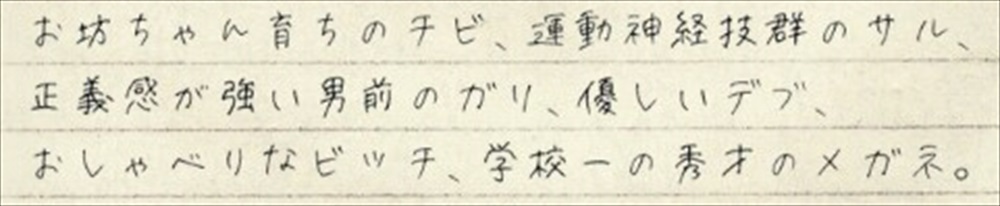 お坊ちゃん育ちのチビ、運動神経技群のサル、
正義感が強い男前のガリ、優しいデブ、
おしゃべりなビッチ、学校一の秀才のメガネ。